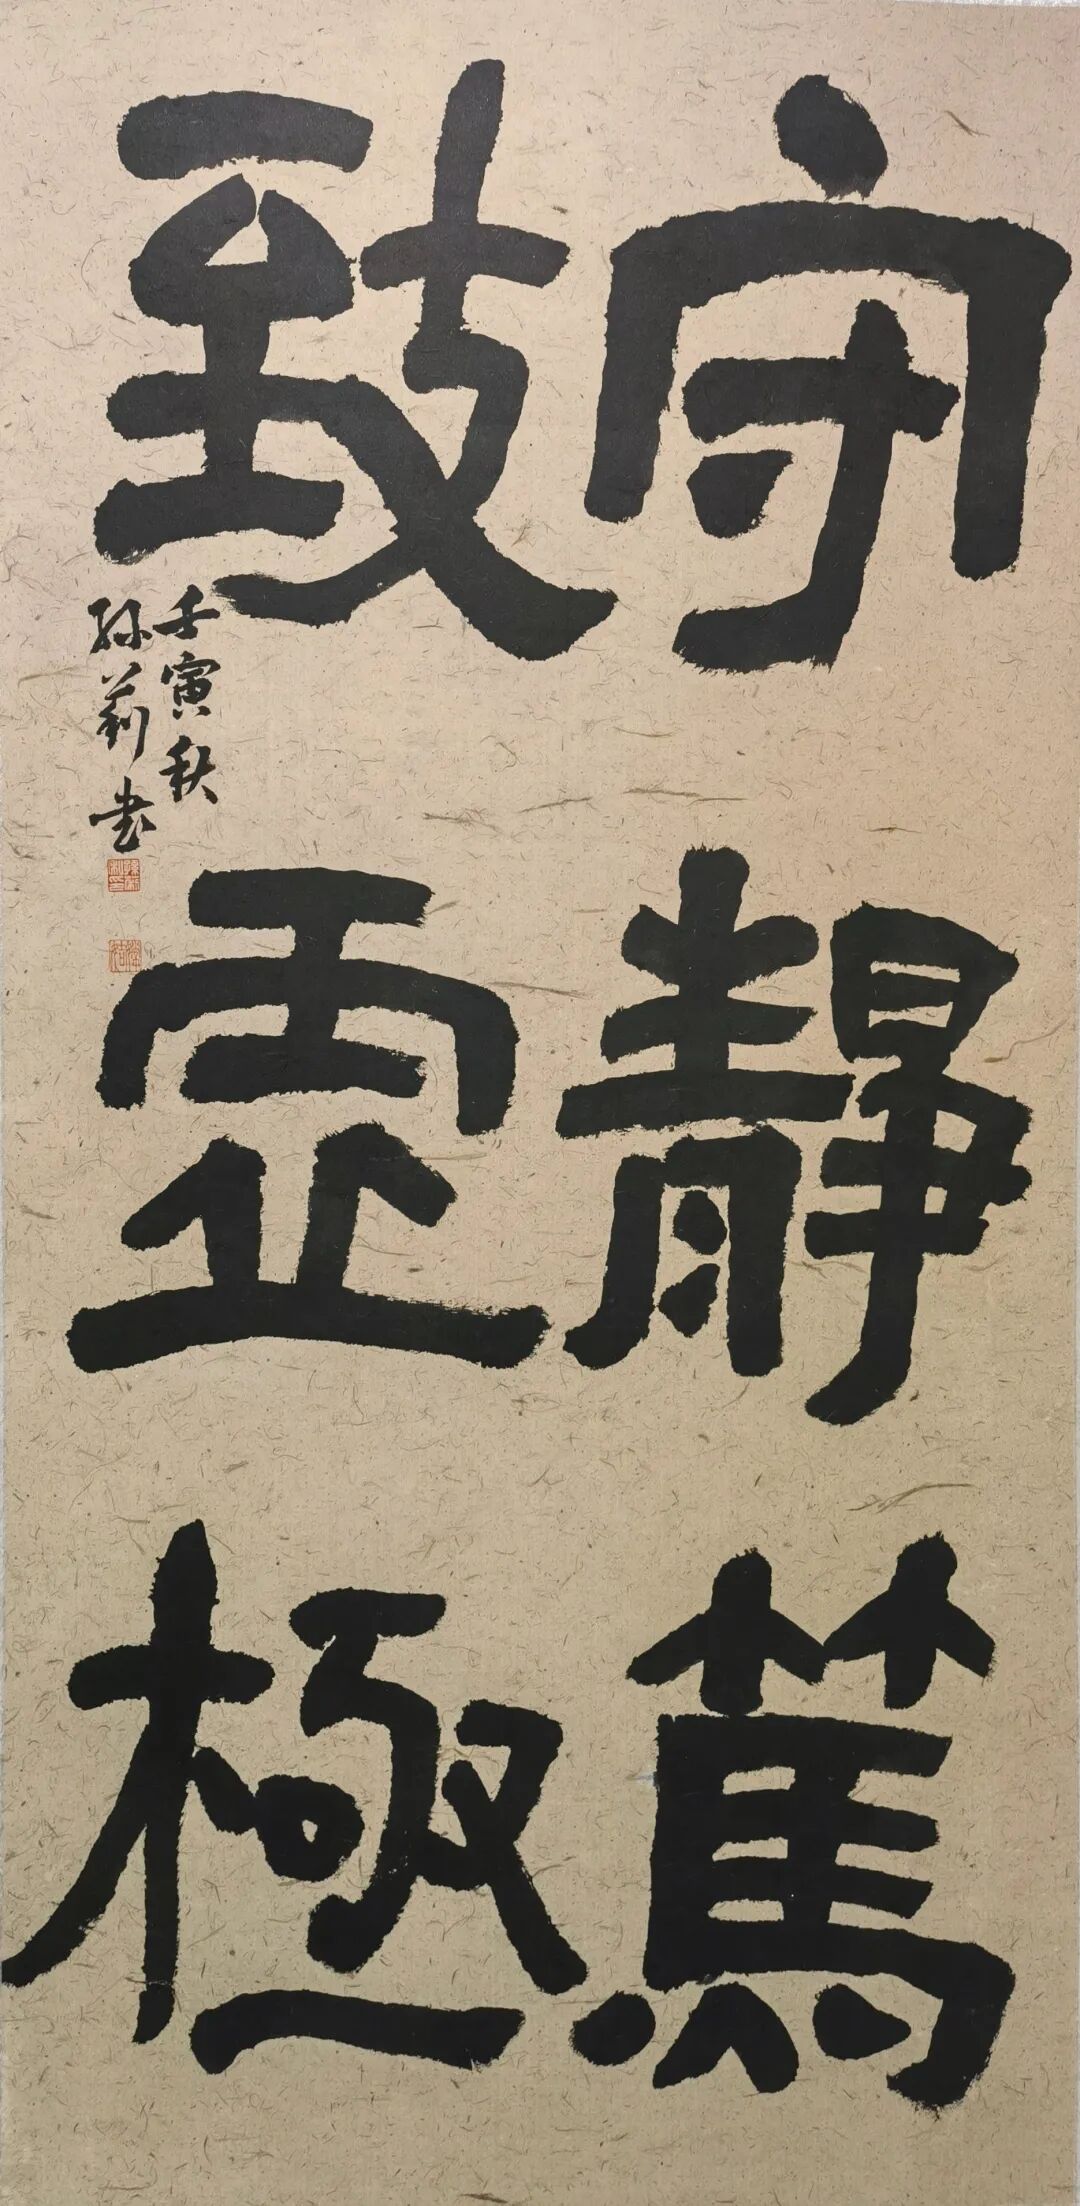 守靜篤
致虛極
壬寅秋
孫莉書